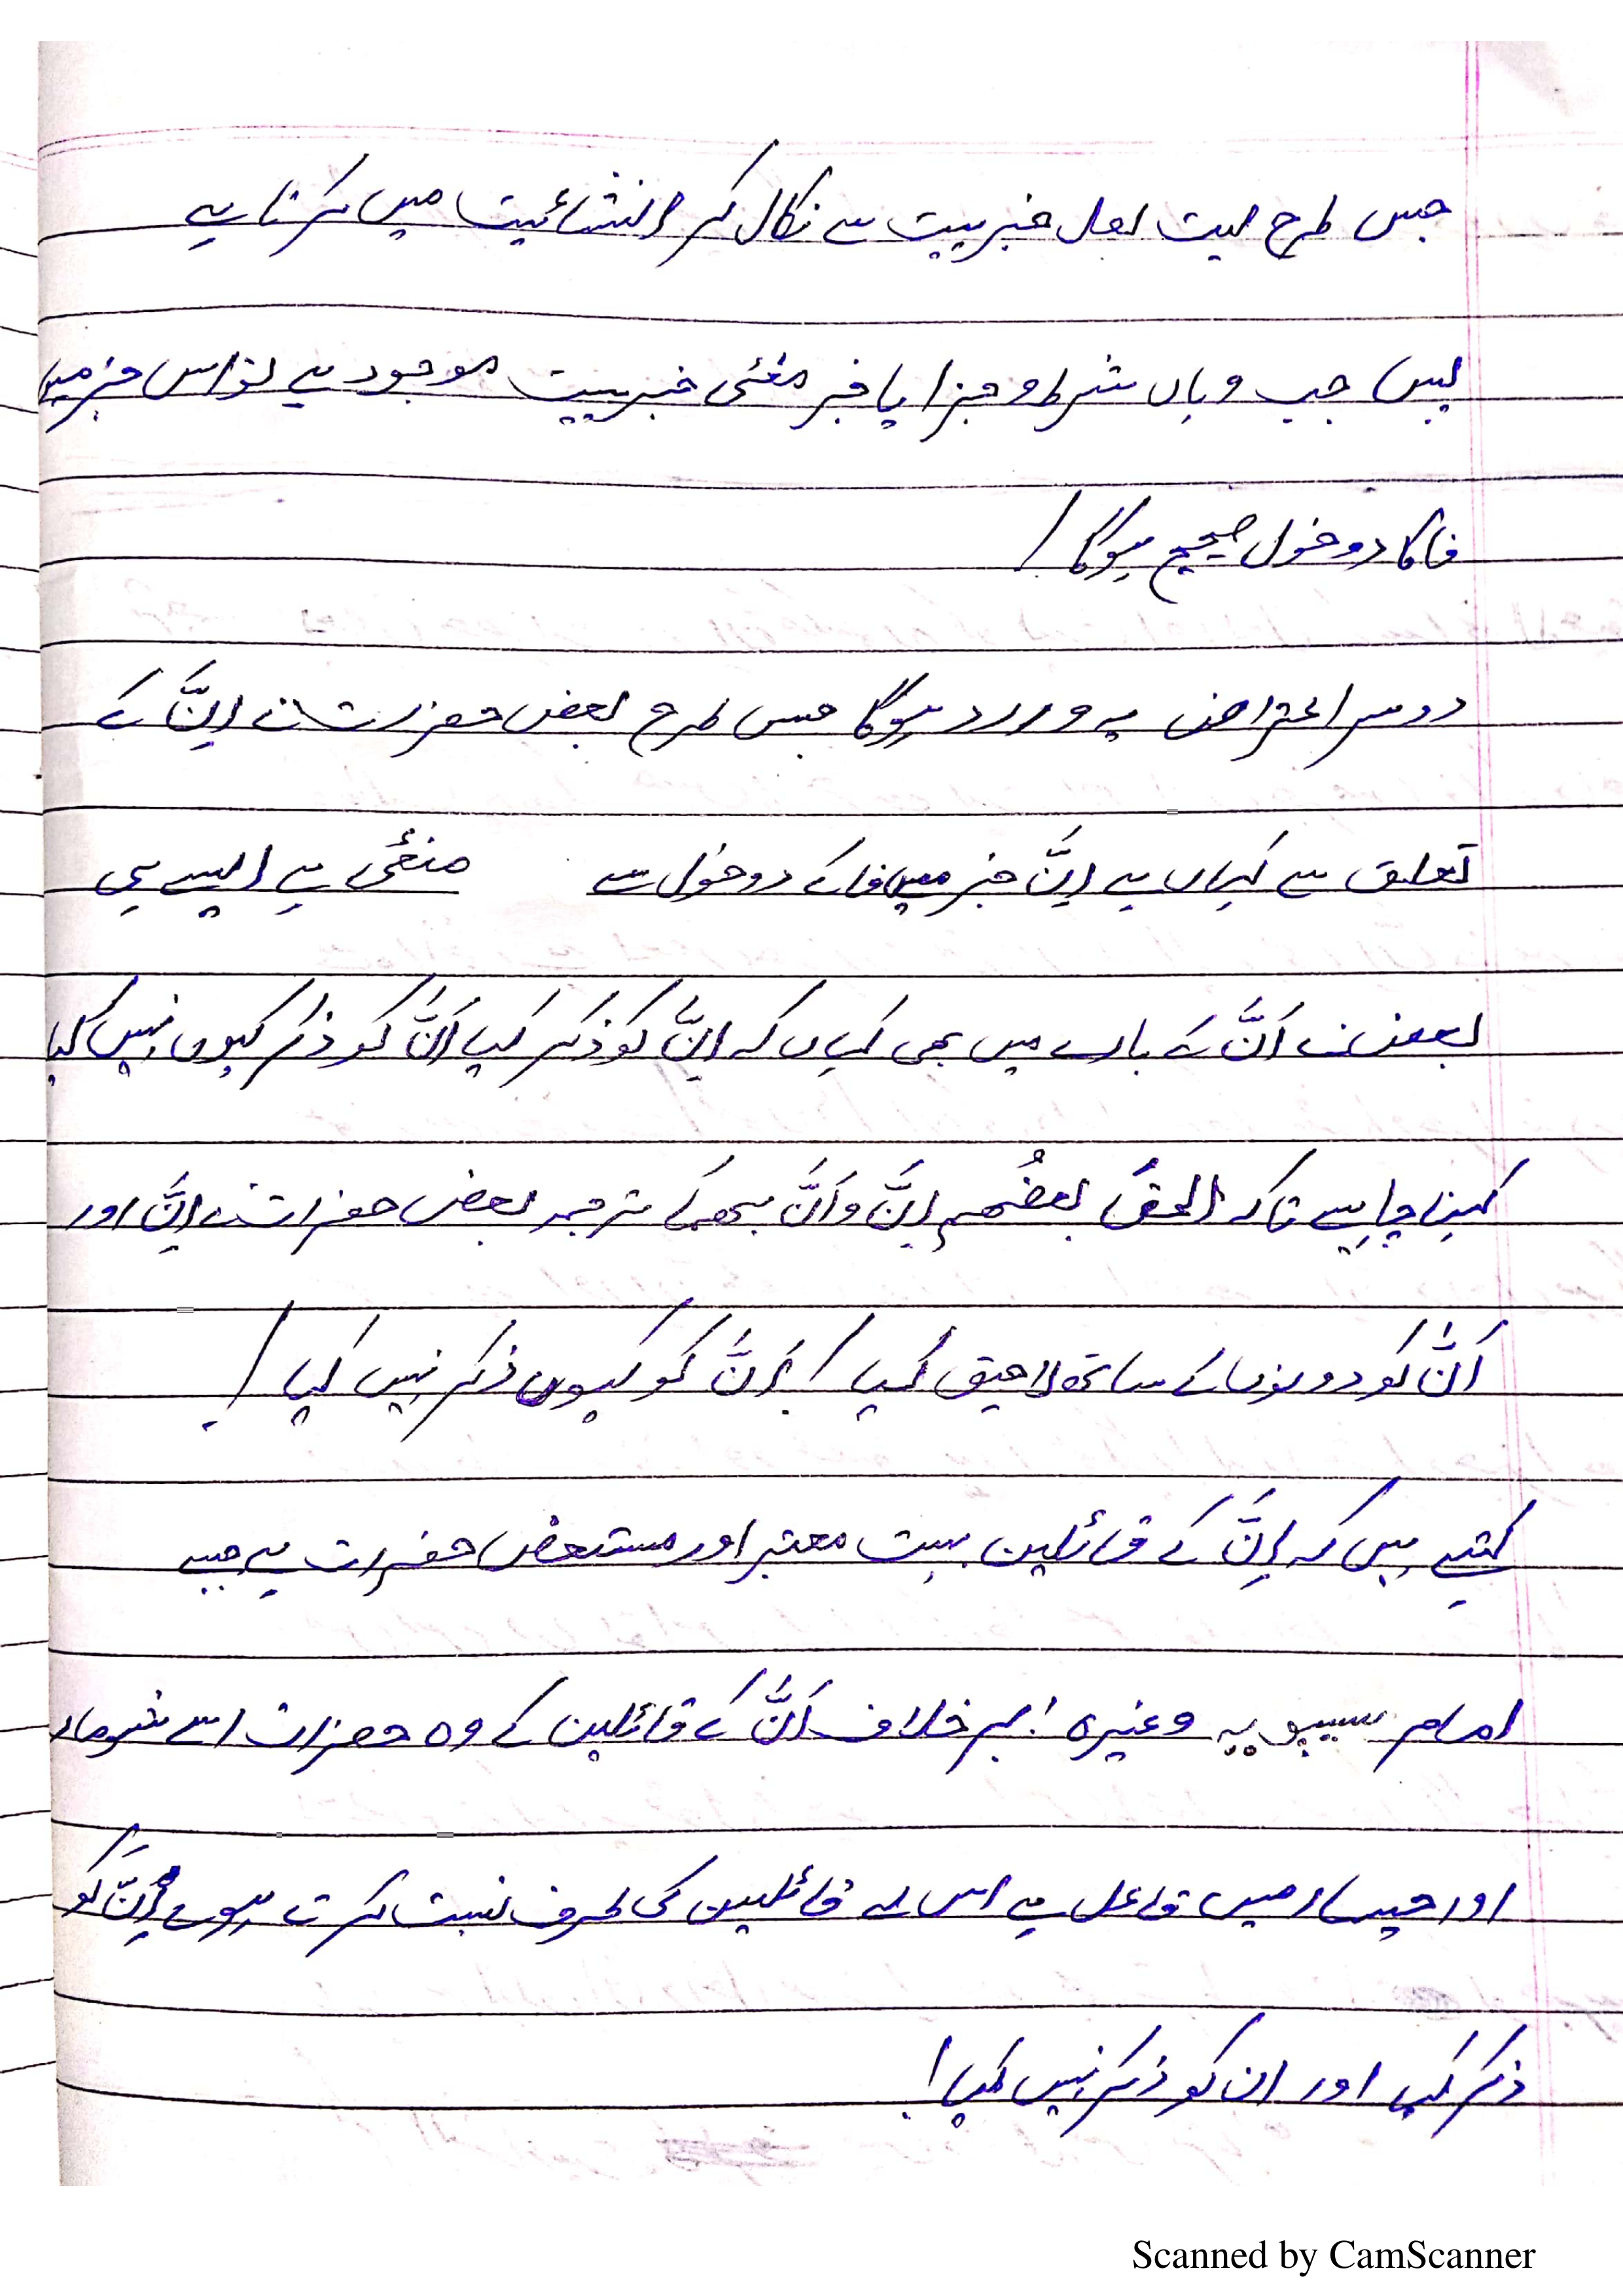 جس طرح لیت لعل خبریت سے نکال کر انشائیت میں کرتا ہے
پس جب وہاں شرط و جزا یا خبر معنئ خبریت موجود ہے تو اس خبر میں
فا کا دوخول صحیح ہوگا!
دوسر اعتراض یہ وارد ہوگا جس طرح بعض حضرت نے اِنَّ کے
تعلق سے کہاں ہے اِنَّ خبر میں فا کے دوخول سے منعئ ہے ایسے ہی
بعض نے اَنَّ کے بارے میں بھی کہاں کہ اِنَّ کو ذکر کیا اَنَّ کو ذکر کیوں نہیں کیا
کہنا چاہیے تاکہ الحقَ بعضُھم اِنَّ وَاَنَّ بھما ترجمہ بعض حضرات نے اِنَّ اور
اَنَّ کو دونوں کے ساتھ لاحق کیا! اَنَّ کو کیوں ذکر نہیں کیا!
کہتے ہیں کہ اِنَّ کے قائلین بہت معتبر اور حضرت ہے جیسے
امام سیبویہ وغیرہ! برخلاف اَنَّ کے قائلین کے وہ حضرات اسے
اور میں قاعل ہے اس لئے قائلین کی طرف نسبت کرتے ہوے اِنَّ کو
ذکر کیا اور ان کو ذکر نہیں کیا!
Scanned by CamScanner